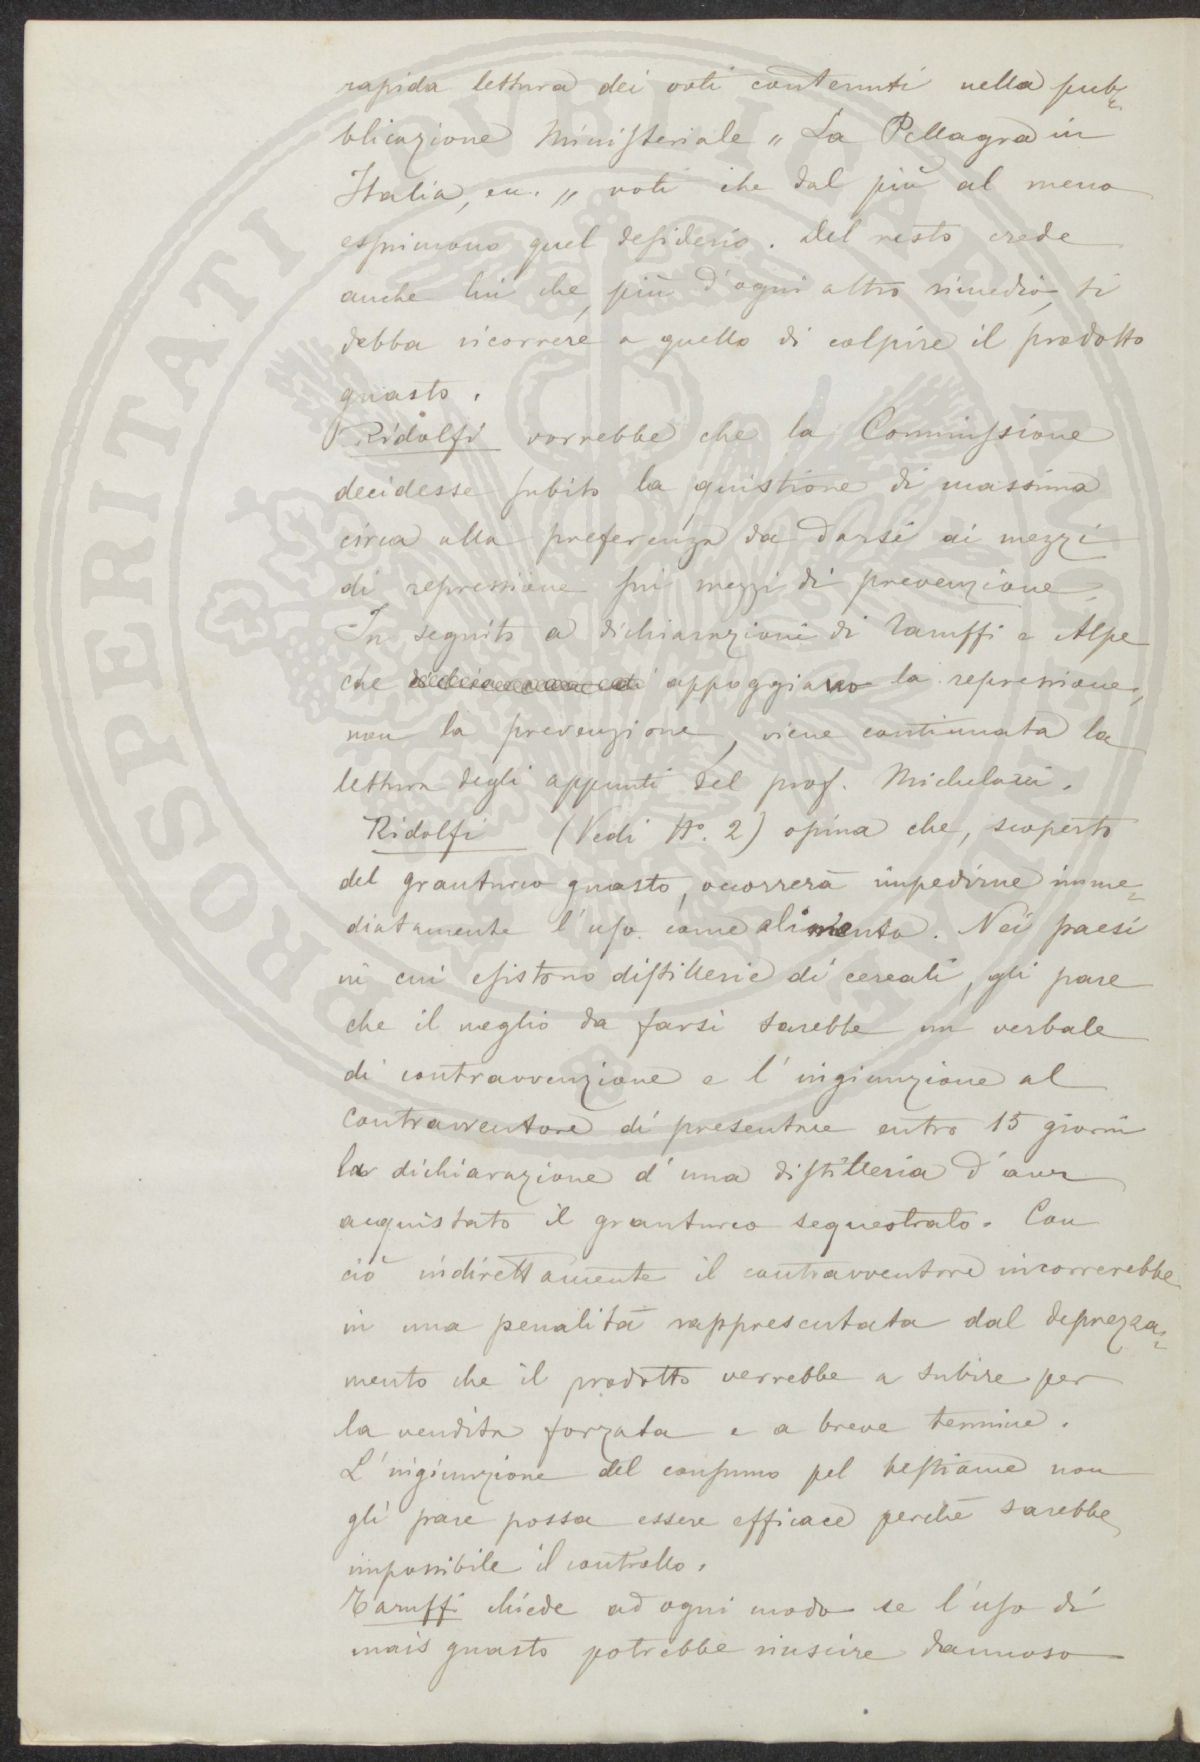 rapida lettura dei voti contenuti nella pub=
blicazione Ministeriale „ La Pellagra in
Italia, ecc. „ voti che dal più al meno
esprimono quel desiderio. Del resto crede
anche lui che, più d'ogni altro rimedio, si
debba ricorrere a quello di colpire il prodotto
guasto.
Ridolfi vorrebbe che la Commissione
decidesse subito la quistione di massima
circa alla preferenza da darsi ai mezzi
di repressione sui mezzi di prevenzione.
In seguito a dichiarazioni di Taruffi e Alpe
che appoggiano la repressione,
non la prevenzione, viene continuata la
lettura degli appunti del prof. Michelacci.
Ridolfi (Vedi No. 2) opina che, scoperto
del granturco guasto, occorrerà impedirne imme=
diatamente l'uso come alimento. Nei paesi
in cui esistono distillerie di cereali, gli pare
che il meglio da farsi sarebbe un verbale
di contravvenzione e l'ingiunzione al
contravventore di presentare entro 15 giorni
la dichiarazione d'una distilleria d'aver
acquistato il granturco sequestrato. Con
ciò indirettamente il contravventore incorrerebbe
in una penalità rappresentata dal deprezza=
mento che il prodotto verrebbe a subire per
la vendita forzata e a breve termine.
L'ingiunzione del consumo pel bestiame non
gli pare possa essere efficace perchè sarebbe
impossibile il controllo.
Taruffi chiede ad ogni modo se l'uso di
mais guasto potrebbe riuscire dannoso
PROSPERITATI PVBLICAE